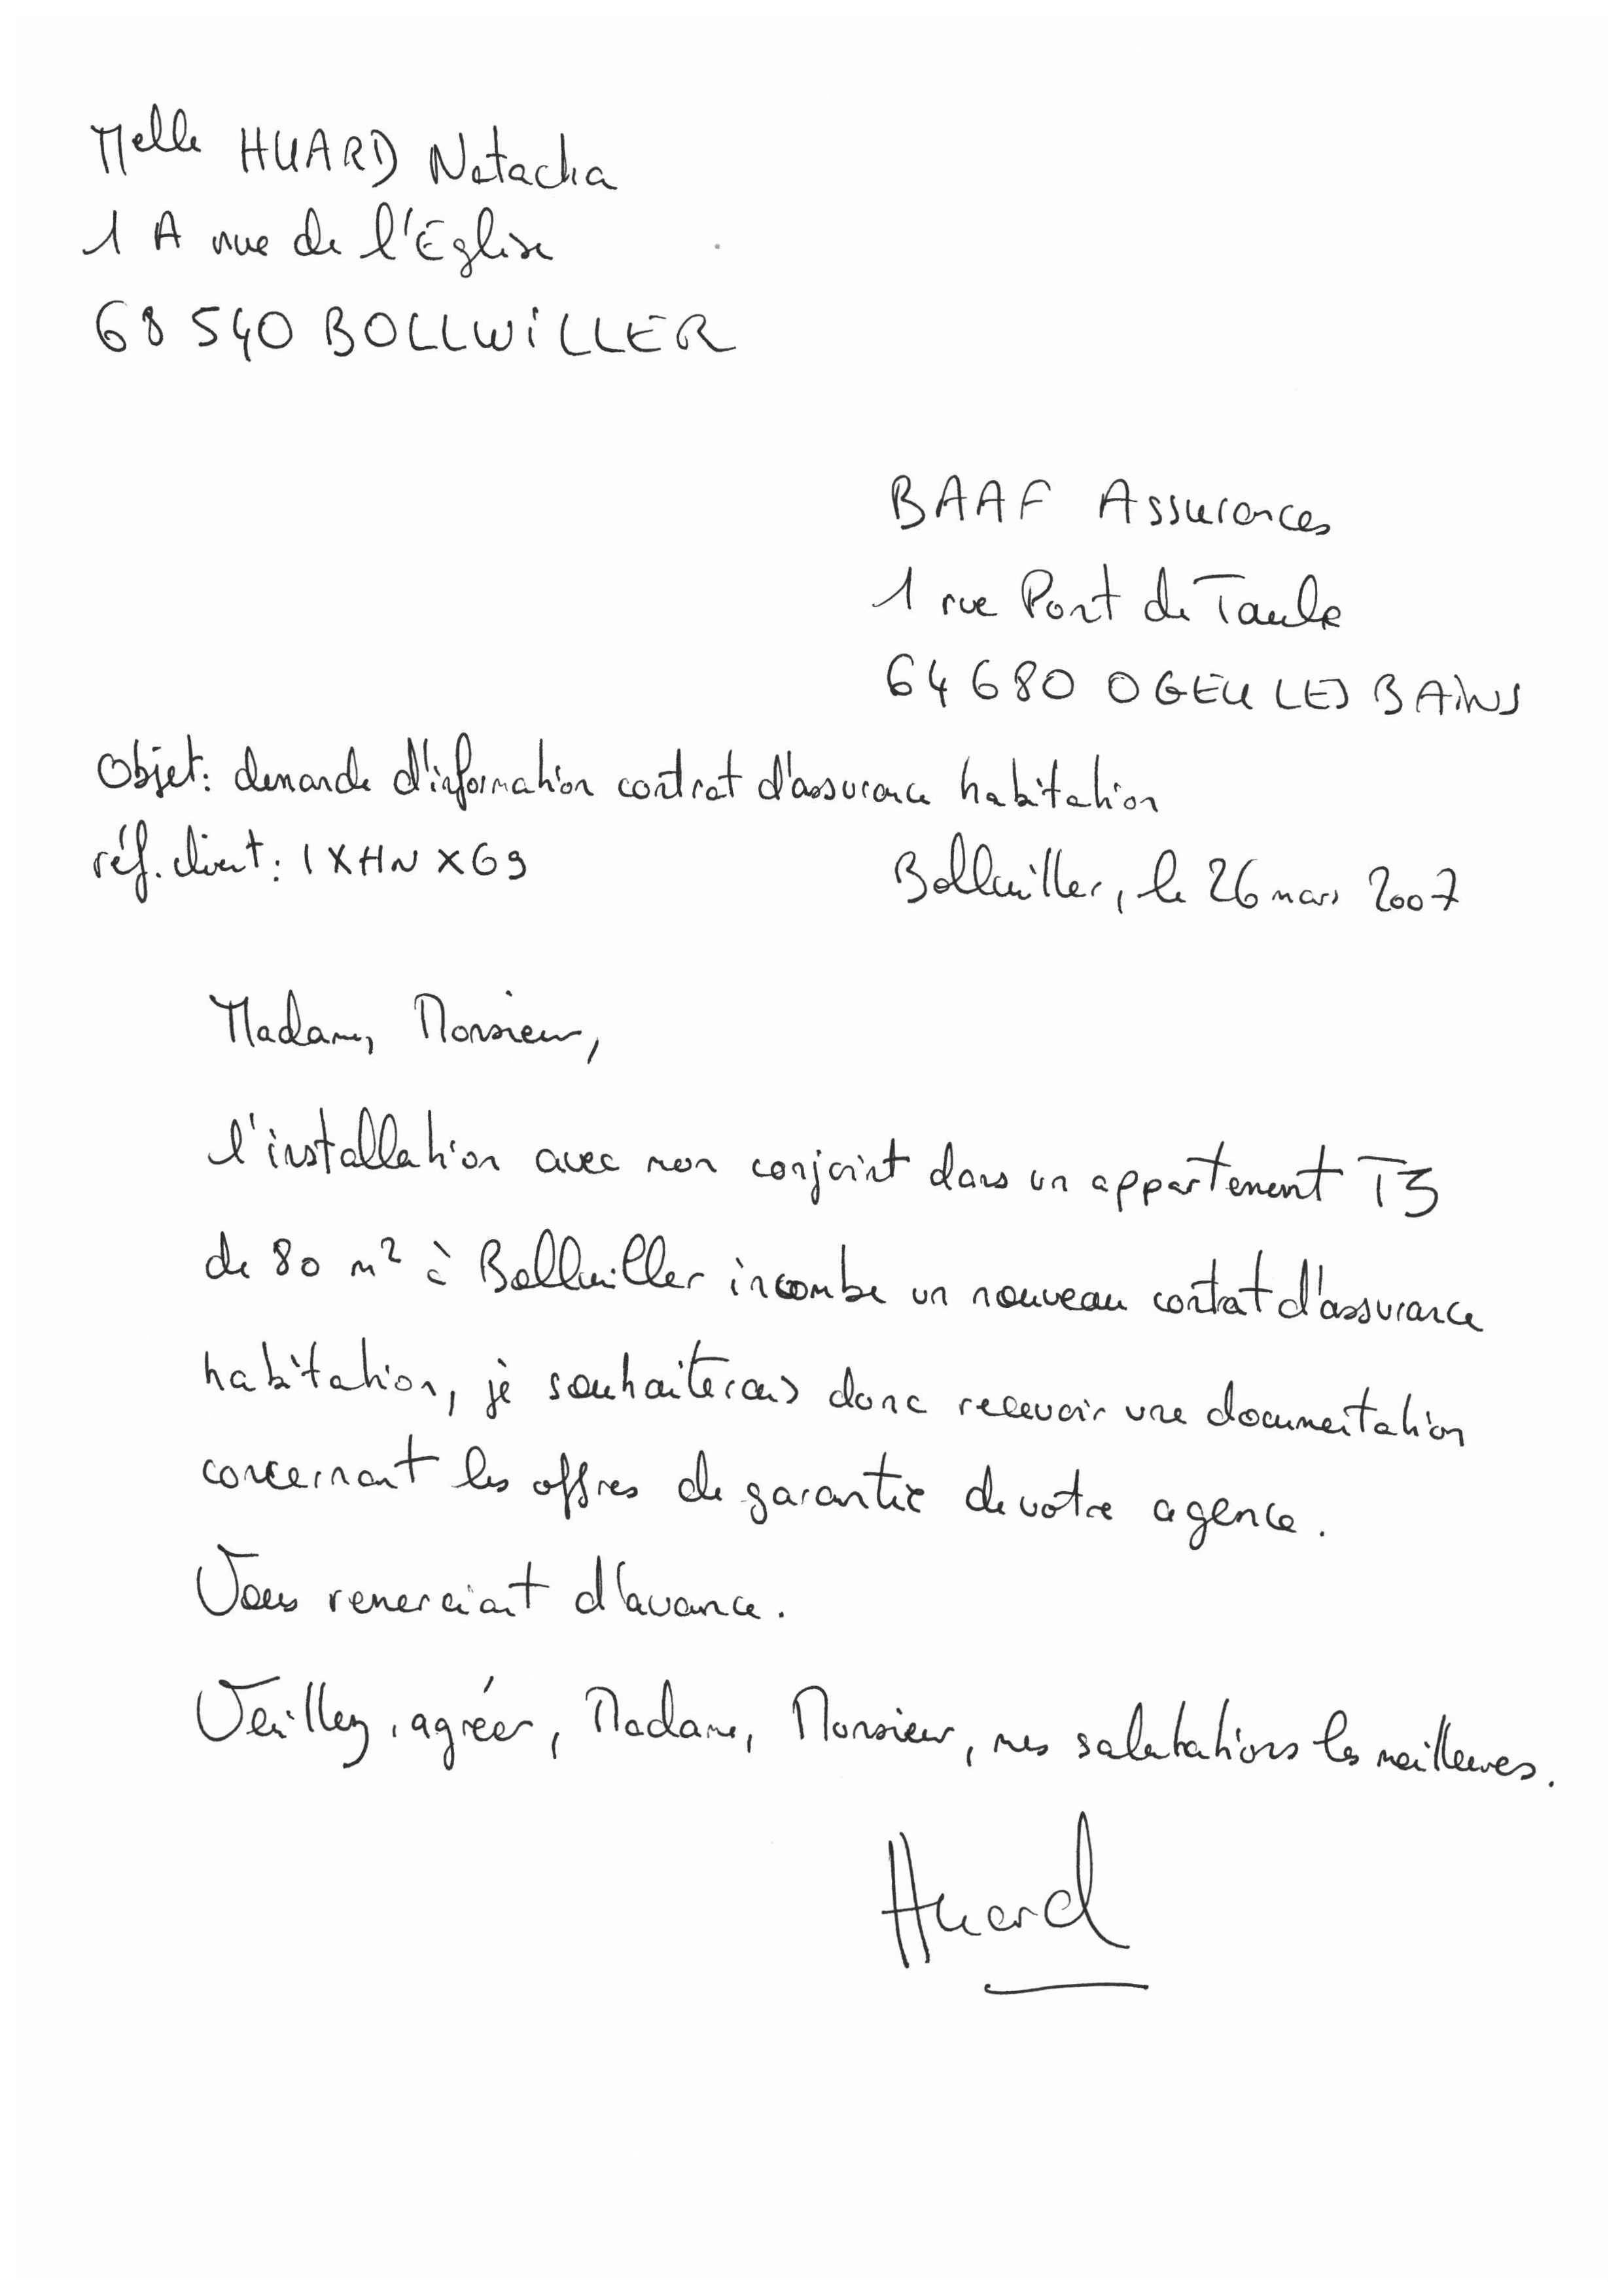 Melle HUARD Natacha
1 A rue de l'Église
68 540 BOLLWILLER
BAAF Assurances
1 rue Pont de Taule
64 680 OGEU LES BAINS
Objet: demande d'information contrat d'assurance habitation
réf. client: IXHNX69
Bollwiller, le 26 mars 2007
Madame, Monsieur,
l'installation avec mon conjoint dans un appartement T3
de 80 m² à Bollwiller incombe un nouveau contrat d'assurance
habitation, je souhaiterais donc recevoir une documentation
concernant les offres de garantie de votre agence.
Vous remerciant d'avance.
Veuillez, agréer, Madame, Monsieur, mes salutations les meilleures.
Huard